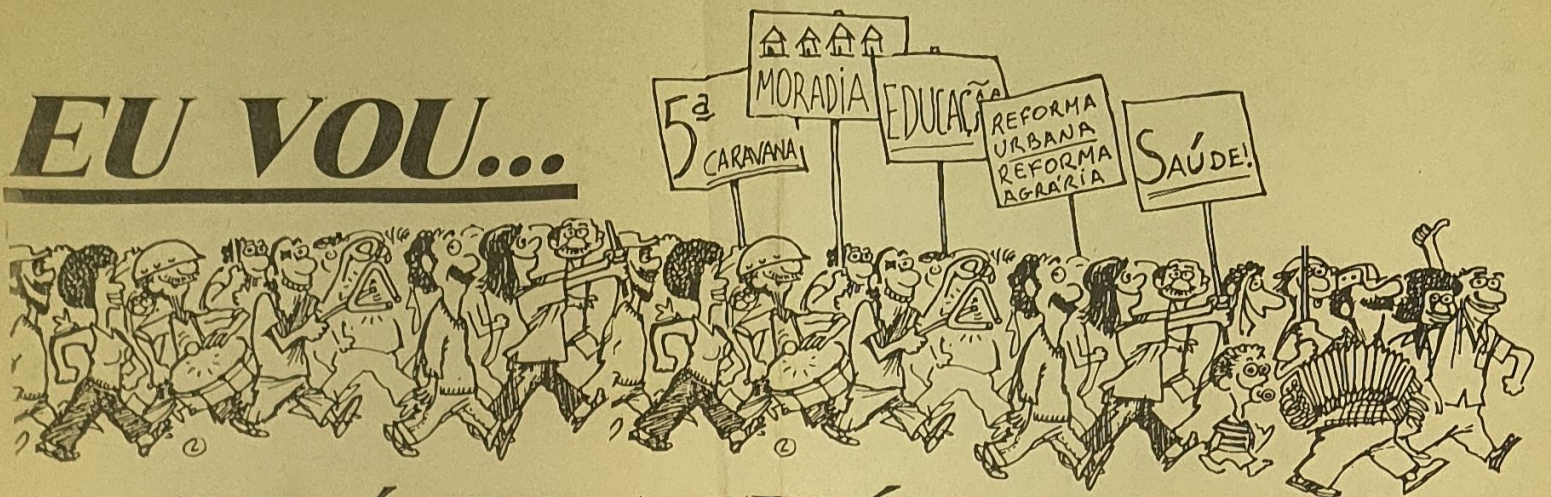 EU VOU...
5ª
CARAVANA
MORADIA
EDUCAÇÃ
REFORMA
URBANA
REFORMA
AGRÁRIA
SAÚDE!